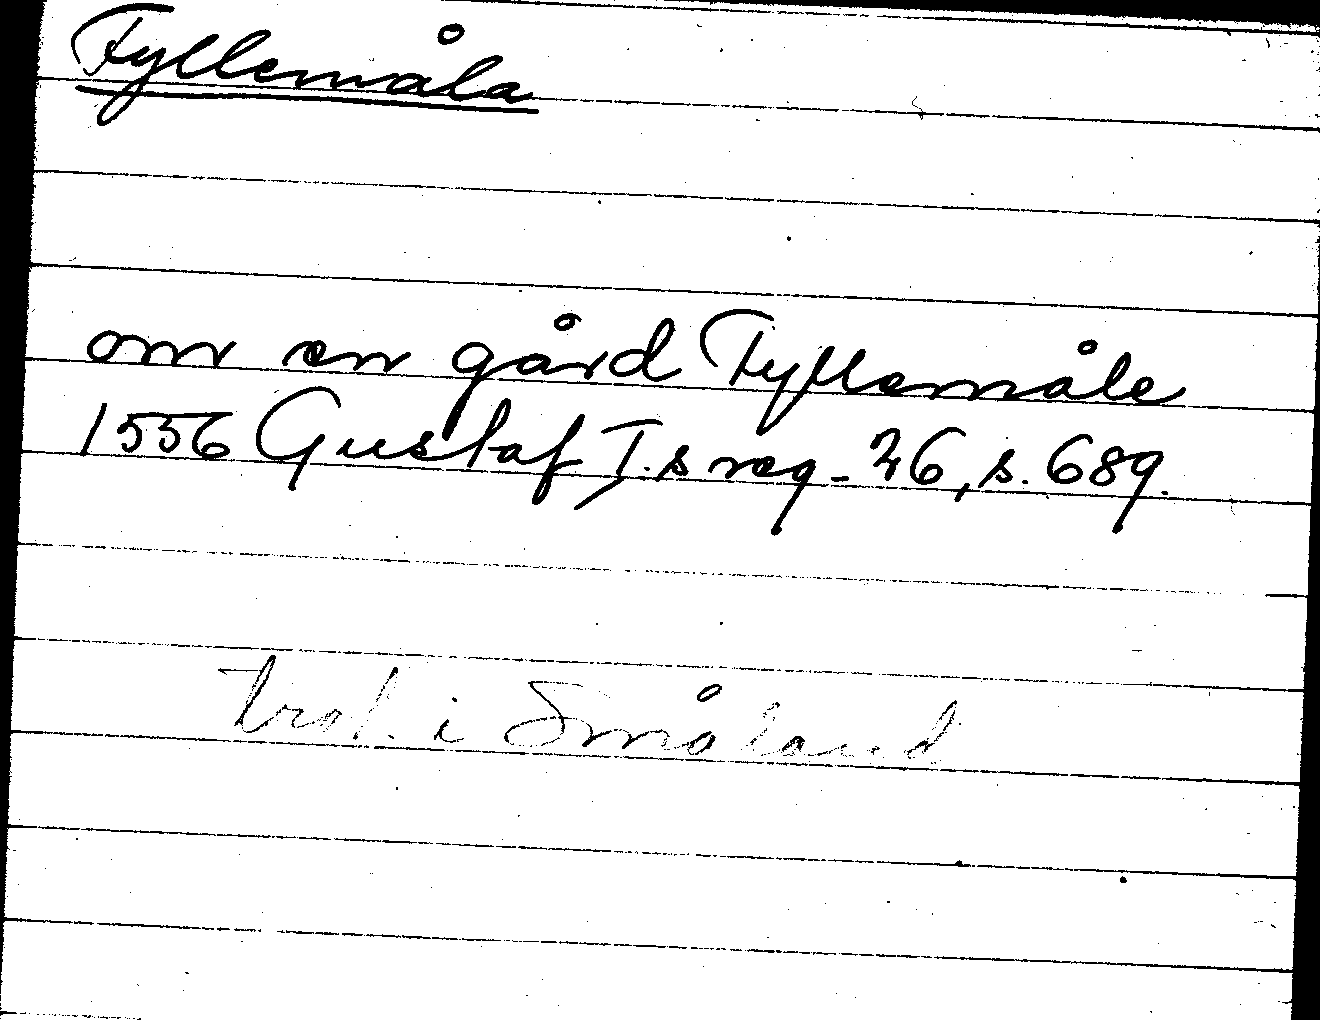 Fyllemåla
om en gård Fyllemåle
1556 Gustaf I.s reg. 26, s. 689.
trol. i Småland